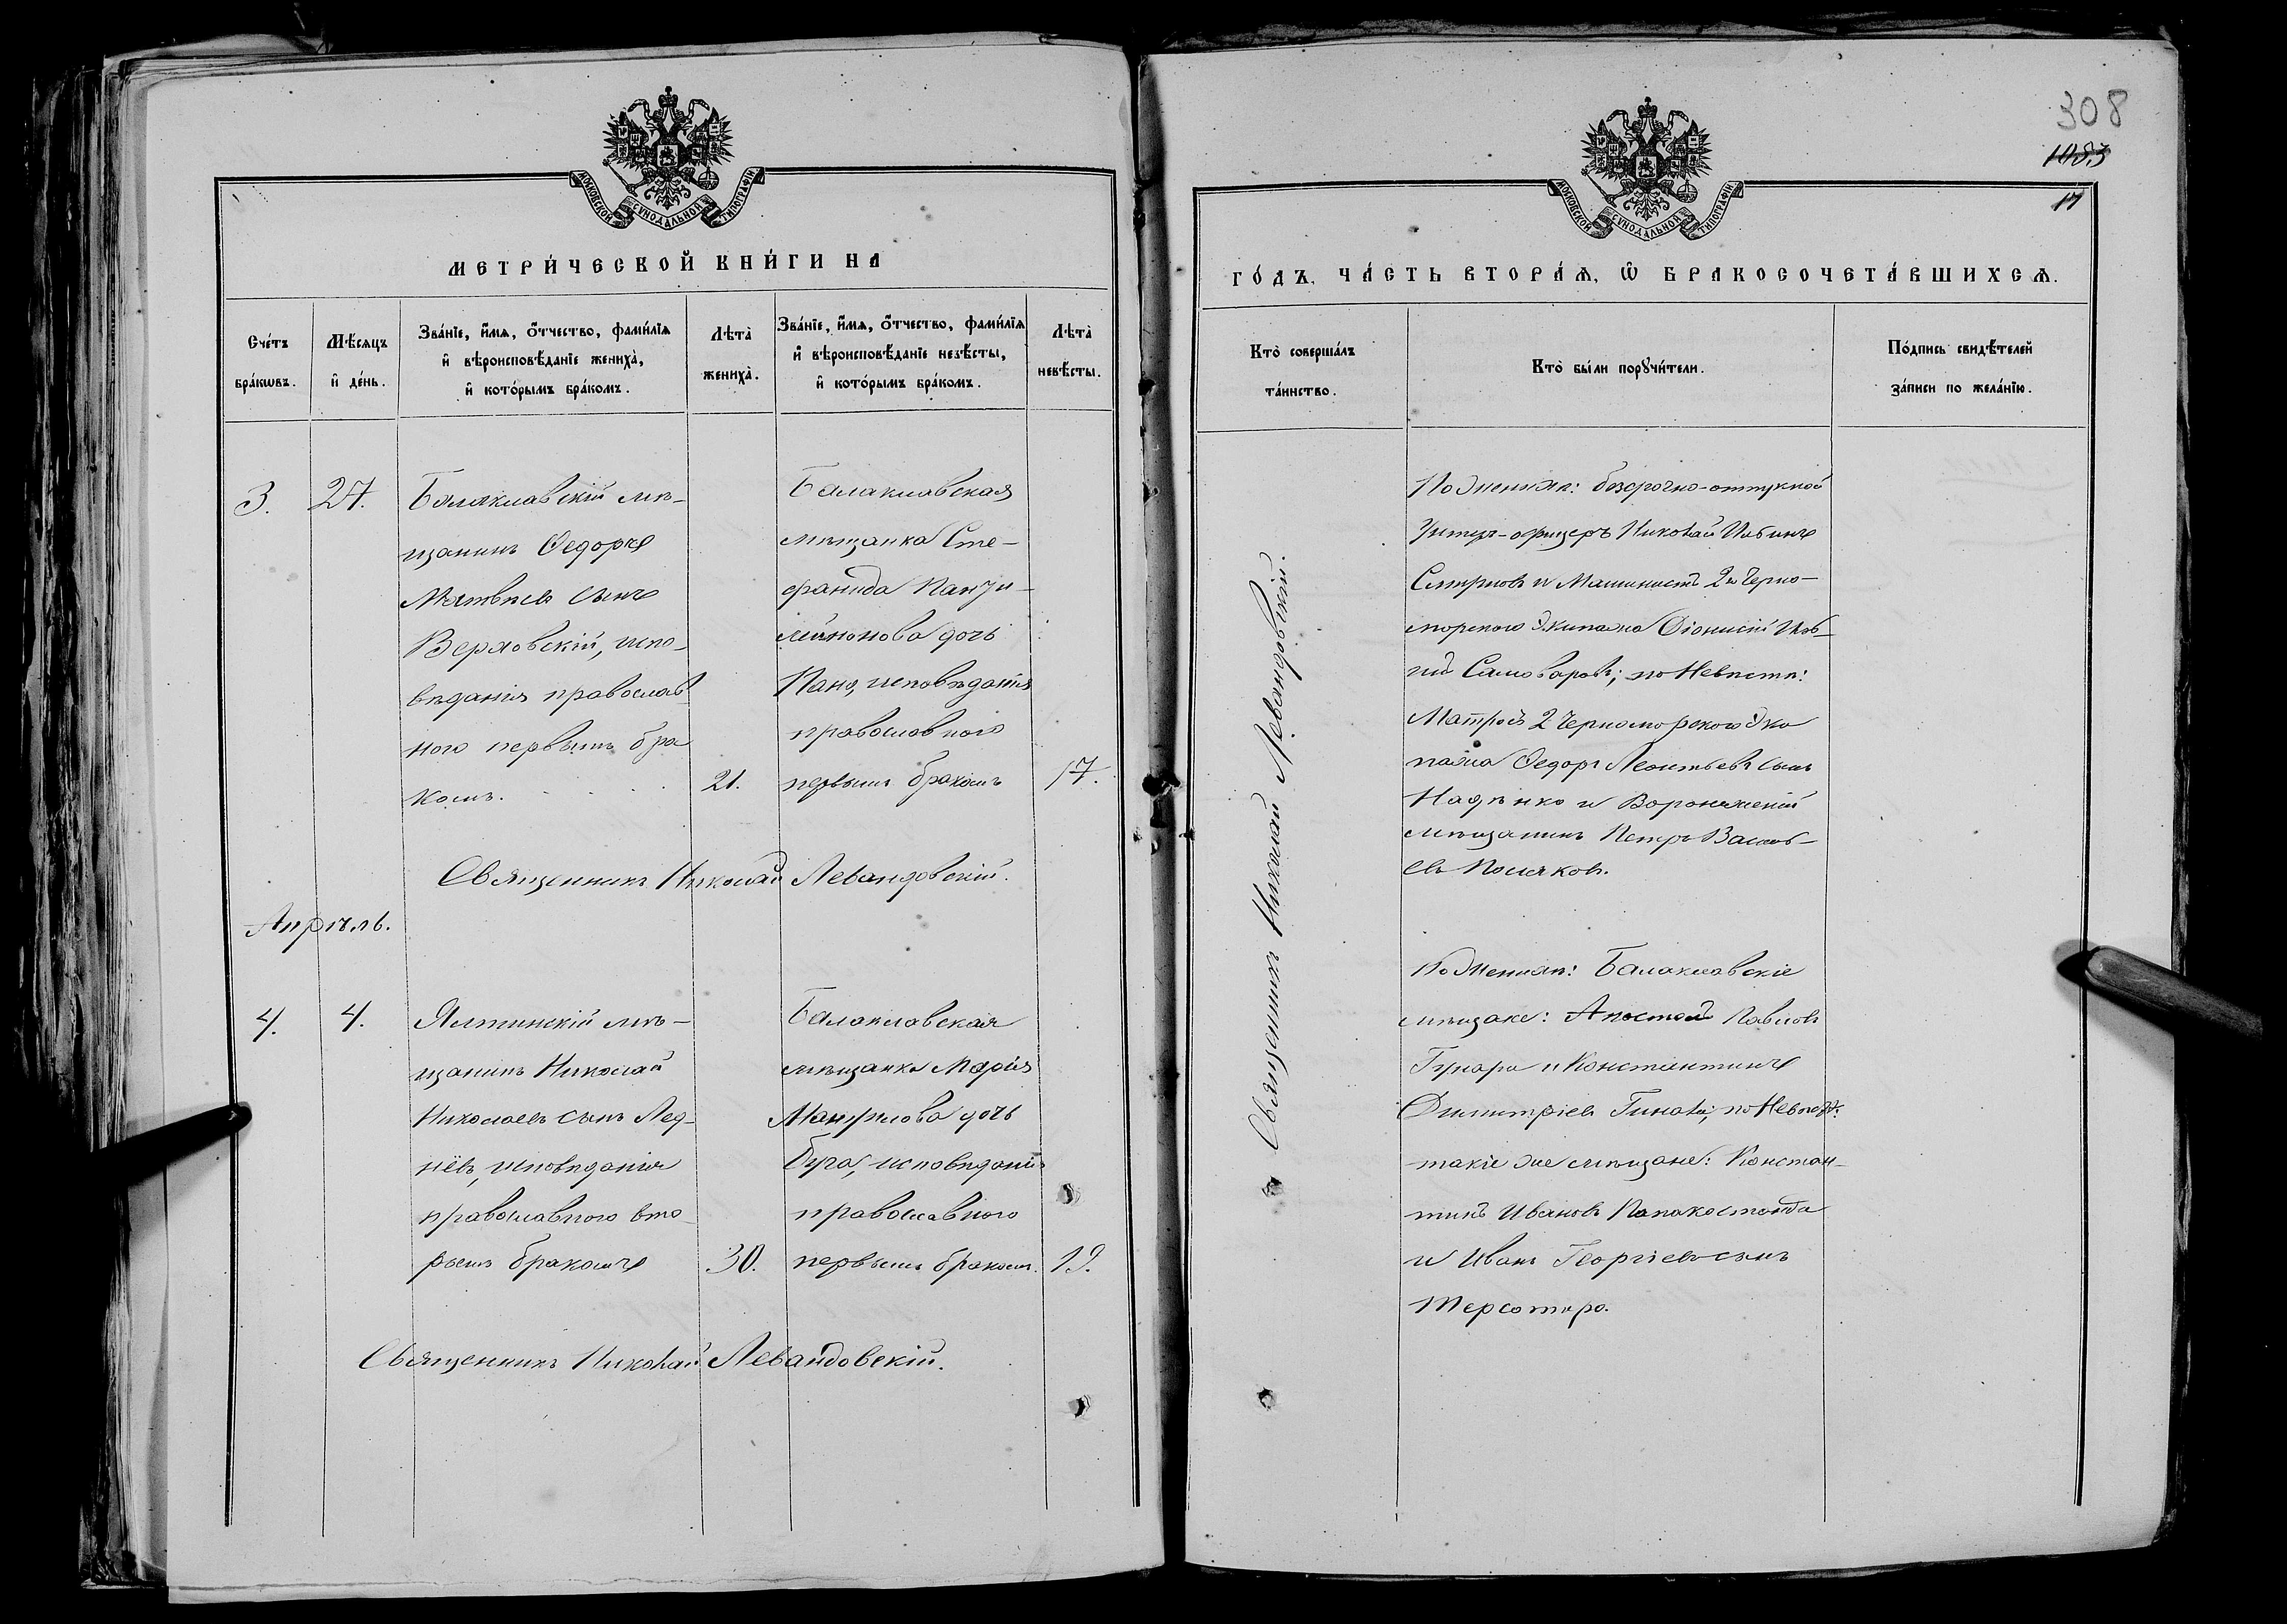 МОСКОВСКОЙ СѴНОДАЛЬНОЙ ТИПОГРАФІИ
МЕТРИ́ЧЕСКОЙ КНИ́ГИ НА
Сче́тъ бра́кѡвъ.
Мѣ́сяцъ и҆ де́нь.
Зва́нїе, и҆́мѧ, ѻ҆́тчество, фами́лїѧ и҆ вѣроисповѣ́данїе жениха̀, и҆ кото́рымъ бра́комъ.
Лѣта̀ жениха̀.
Зва́нїе, и҆́мѧ, ѻ҆́тчество, фами́лїѧ и҆ вѣроисповѣ́данїе невѣ́сты, и҆ кото́рымъ бра́комъ.
Лѣта̀ невѣ́сты.
3.
27.
Балаклавскій мѣ-
щанинъ Ѳедоръ
Матвѣевъ сынъ
Верловскій, испо-
вѣданія православ-
ного первымъ бра
комъ.
21.
Балаклавская
мѣщанка Сте-
фанида Панзи-
лейнонова дочь
Пано, исповѣданія
православного
первымъ бракомъ
17.
Священникъ Николай Левандовскій.
Апрѣль.
4.
4.
Ялтинскій мѣ-
щанинъ Николай
Николаевъ сынъ Лед-
нёвъ, исповѣданія
православного вто-
рымъ бракомъ
30.
Балаклавская
мѣщанка Марія
Мануилова дочь
Бура, исповѣданія
православного
первымъ бракомъ.
19.
Священникъ Николай Левандовскій.
308
1083
17
МОСКОВСКОЙ СѴНОДАЛЬНОЙ ТИПОГРАФІИ
ГО́ДЪ, ЧА́СТЬ ВТОРА́Ѧ, Ѽ БРАКОСОЧЕТА́ВШИХСѦ.
Кто̀ соверша́лъ та́инство.
Кто̀ бы́ли порꙋчи́тели.
По́дпись свидѣ́телей за́писи по жела́нїю.
Священникъ Николай Левандовскій.
По Женихѣ: безсрочно-отпускной
Унтеръ-офицеръ Николай
Смирновъ и Машинистъ 2го Черно-
морского Экипажа Діонисій
Самоваровъ; по Невѣстѣ:
Матросъ 2 Черноморского Эки
пажа Ѳедоръ Леонтьевъ сынъ
Надѣнко и Воронежскій
мѣщанинъ Петръ Василь-
евъ Поляковъ.
По Женихѣ: Балаклавскіе
мѣщане: Апостолъ Павловъ
и Константинъ
Димитріевъ Гинали; по Невѣстѣ:
такіе же мѣщане: Констан-
тинъ Ивановъ Папакостанда
и Иванъ Георгіевъ сынъ
Терсотиро.